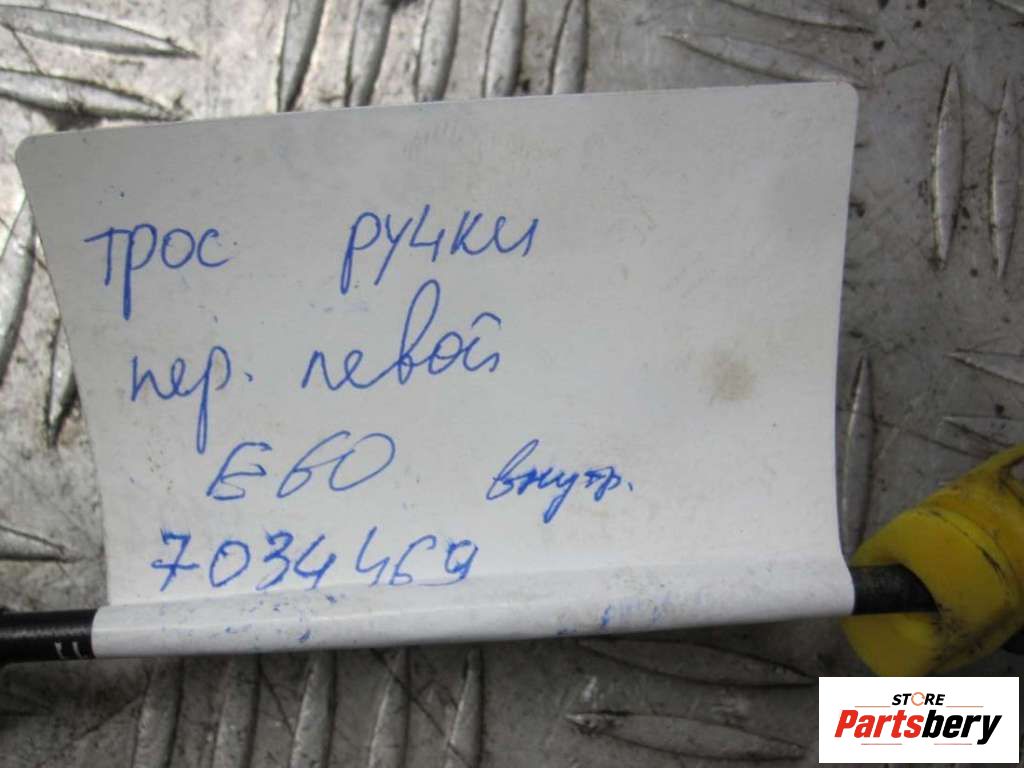 трос ручки
пер. левой
E60 внутр.
7034469
STORE
Partsbery